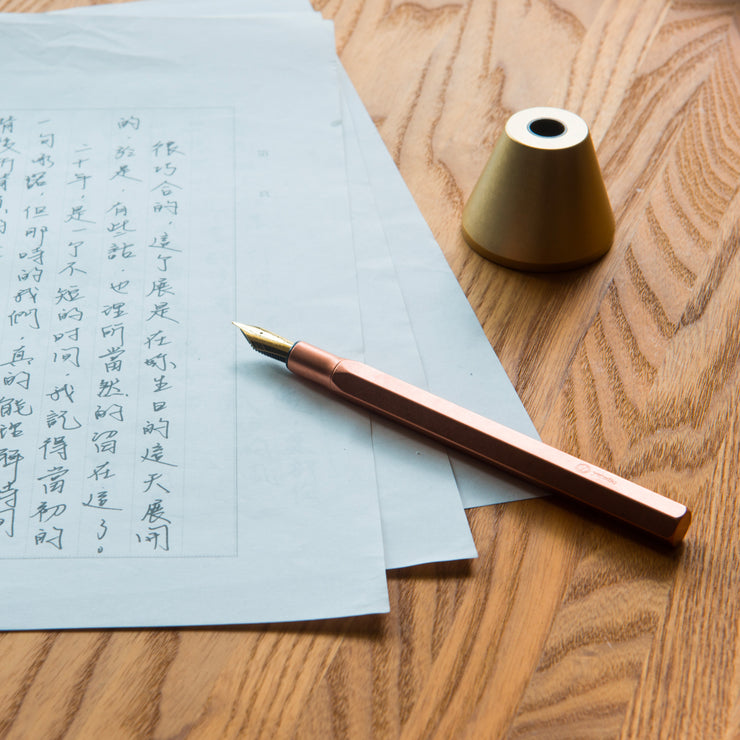 很巧合的，這个展是在妳生日的這天展開
的.於是.有些話.也理所當然的留在這了。
二十年，是一个不短的時间.我記得當初的
一句承諾.但那時的我們.真的能理解時间